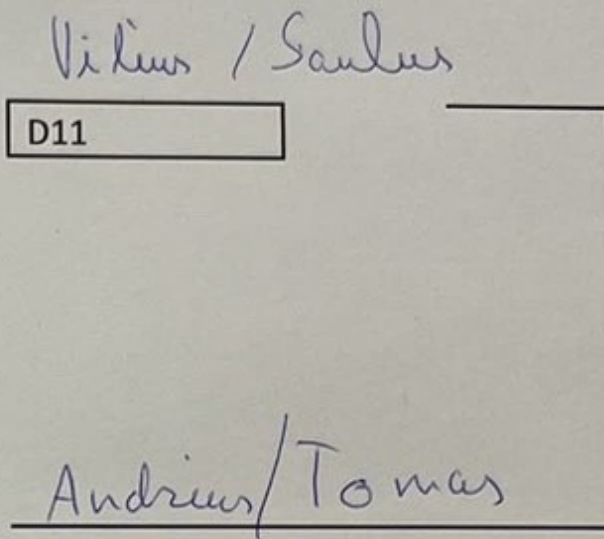 Vilius / Saulus
D11
Andrius/Tomas